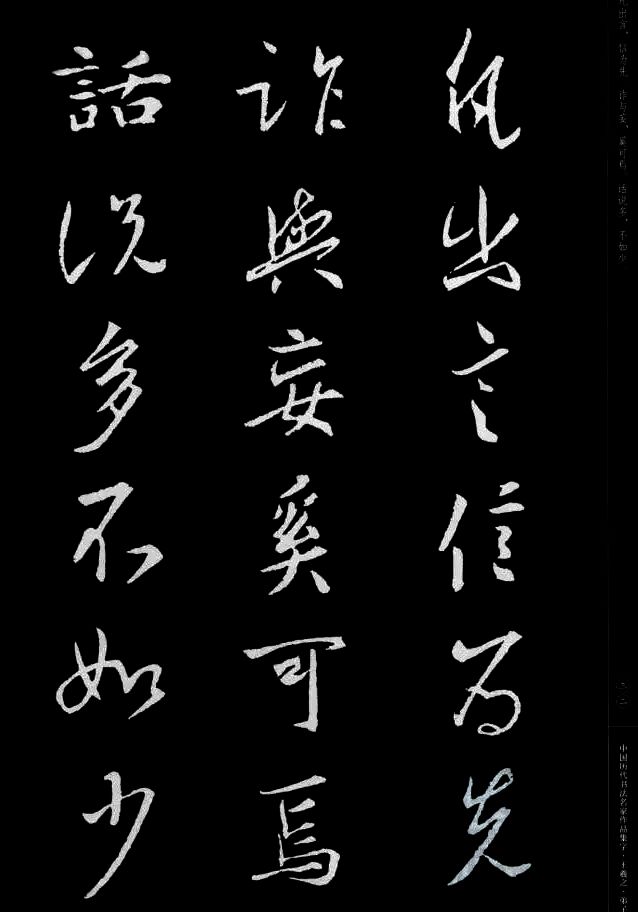 凡出言信为先
詐與妄奚可焉
話说多不如少
出言，信为先 诈与妄，奚可焉 话说多，不如少
中国历代书法名家作品集字·王羲之·弟子